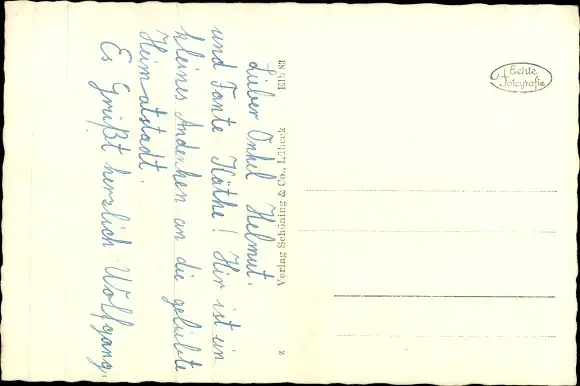 Lieber Onkel Helmut,
und Tante Käthe! Hir ist ein
kleines Andenken an die geliebte
Heimatstadt.
Es Grüßt herzlich Wolfgang.
Verlag Schöning & Co., Lübeck
z
Echte
Fotografie